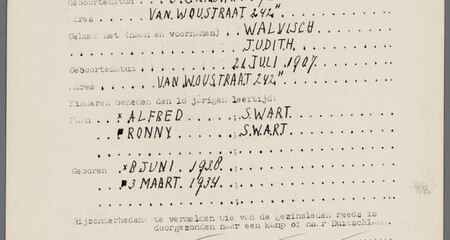 Geboortedatum
Adres VAN.WOUSTRAAT 242"
Gehuwd met (naam en voornamen) WALVISCH
JUDITH.
Geboortedatum 21 JULI. 1907.
Adres VAN.WOUSTRAAT 242"
Kinderen beneden den 18 jarigen leeftijd:
Naam * ALFRED S.WART.
RONNY S.WART.
Geboren * 8 JUNI. 1938.
3 MAART. 1934.
Bijzonderheden te vermelden wie van de gezinsleden reeds is
doorgezonden naar een kamp of naar Duitschland.